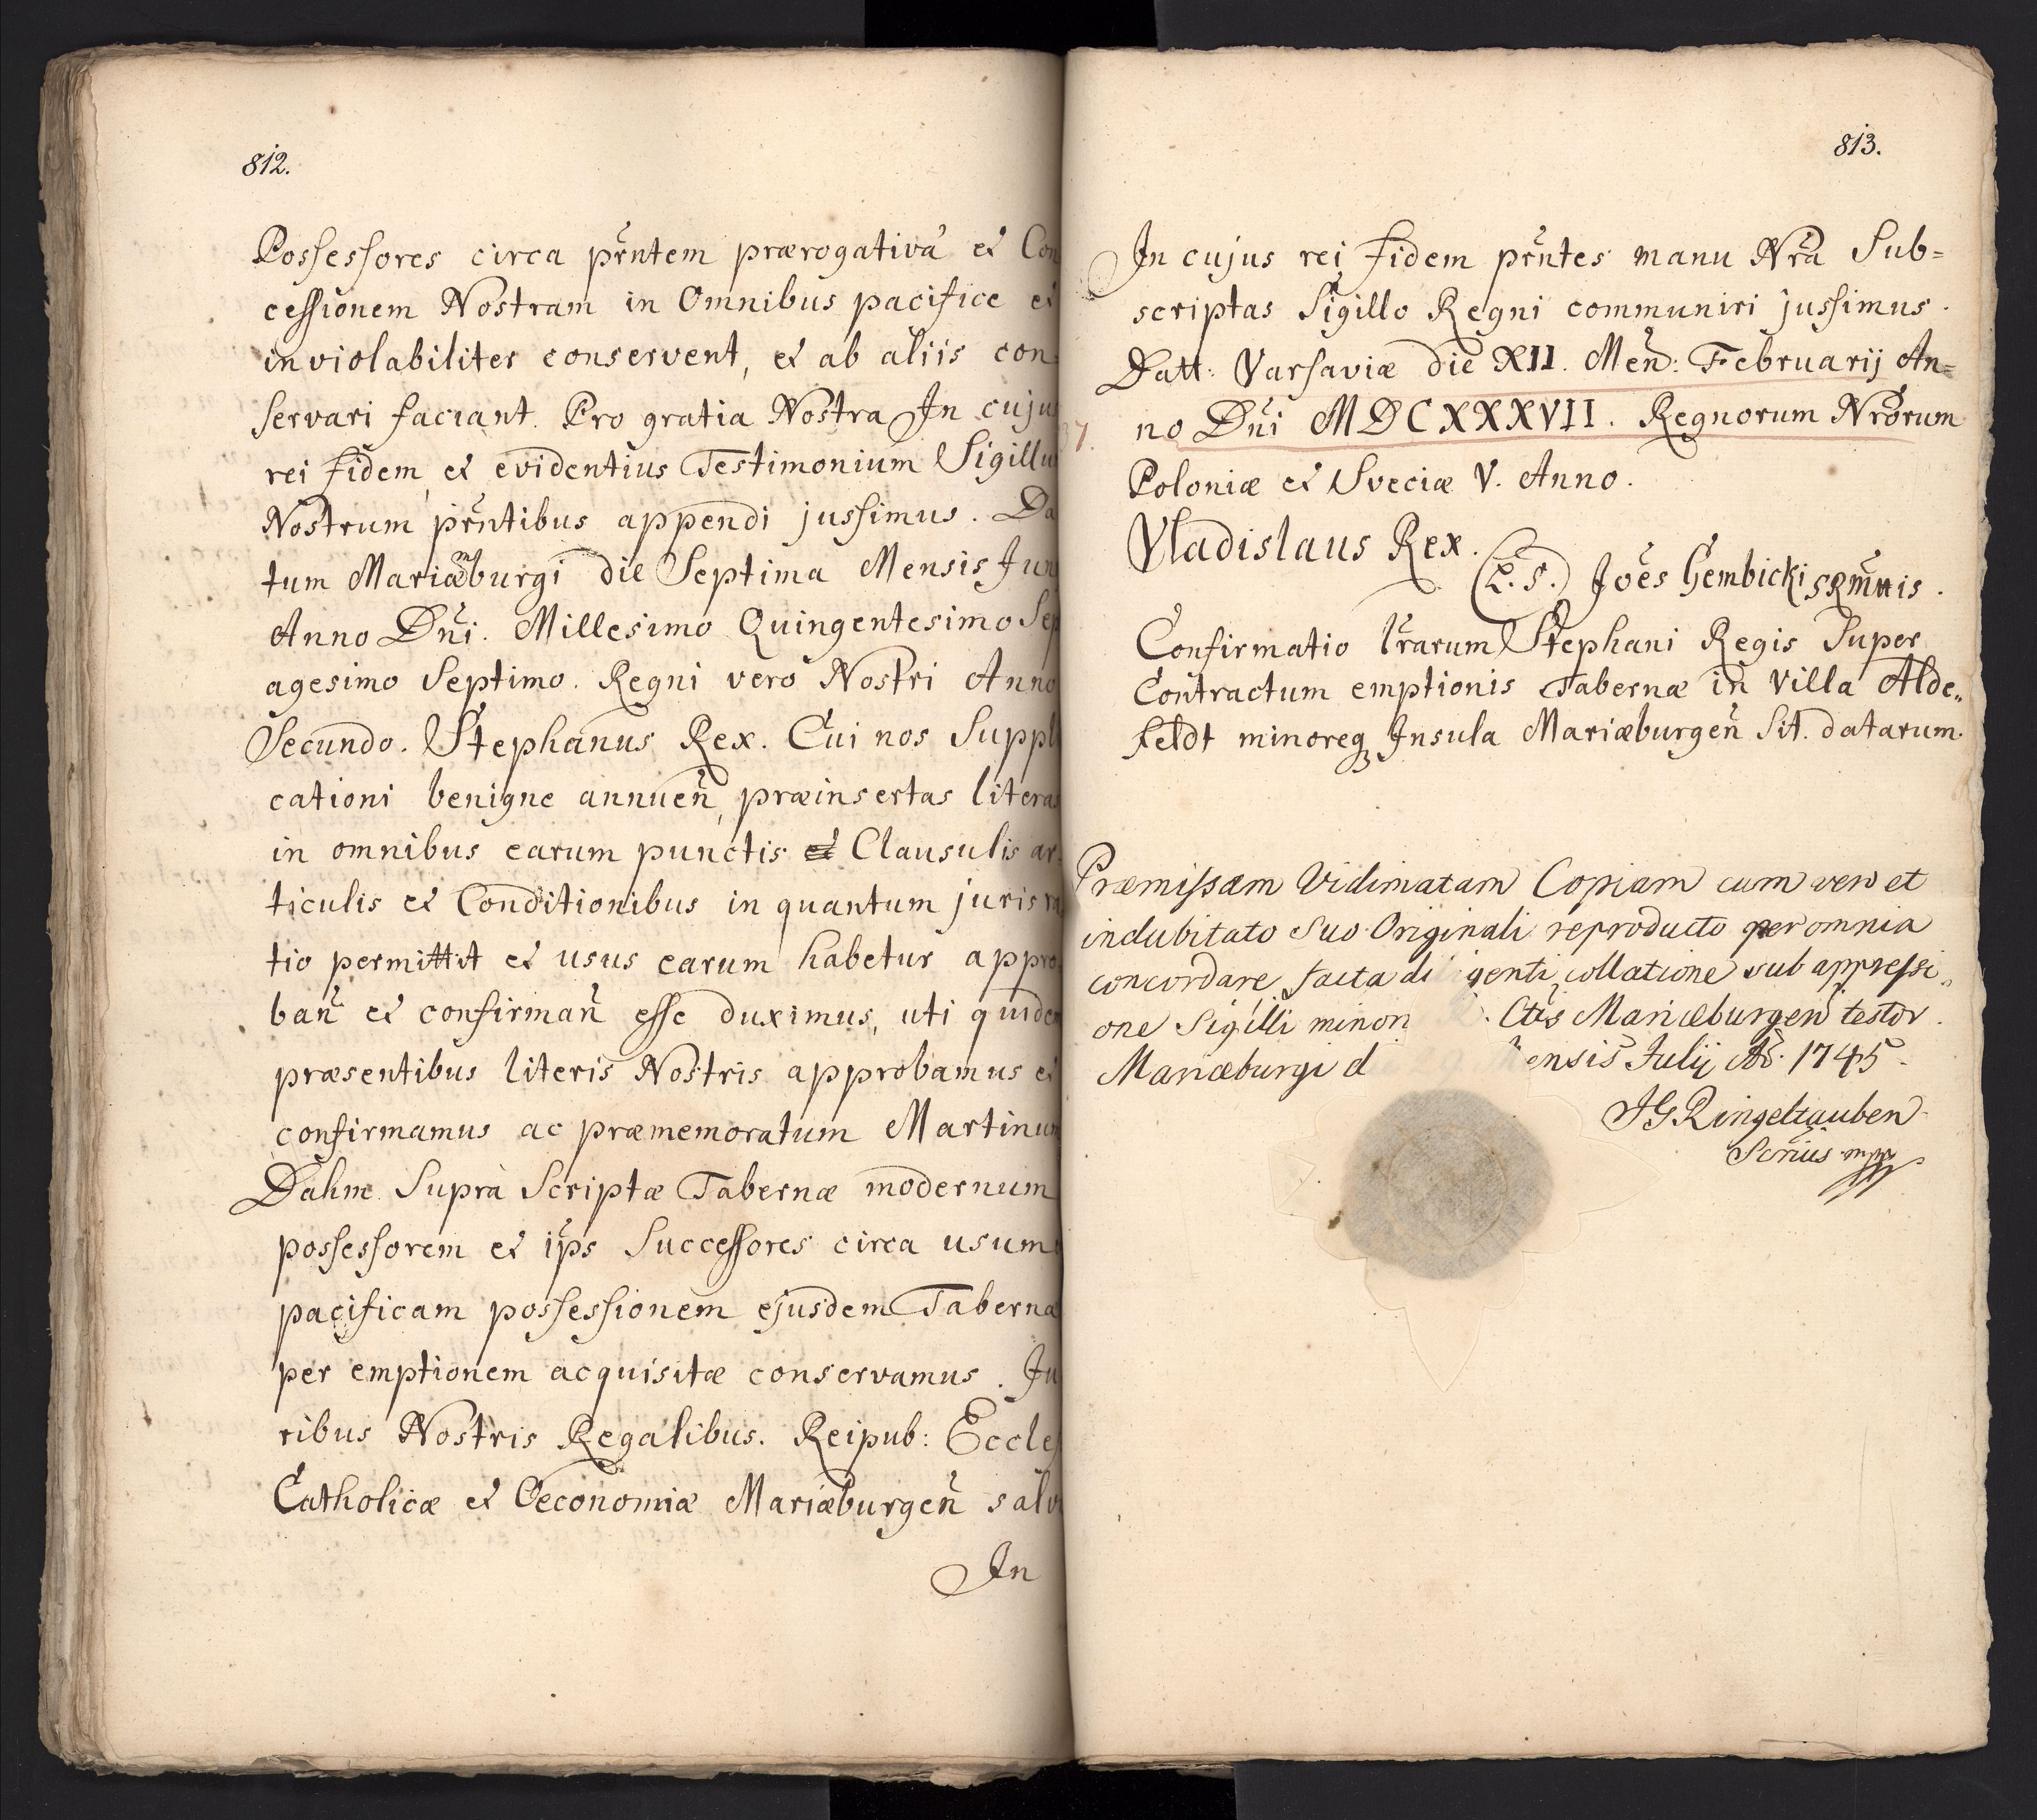 812.
Possessores circa pr̃ntem prærogativã et Con
cessionem Nostram in Omnibus pacifice et
inviolabiliter conservent, et ab aliis con=
servari faciant. Pro gratia Nostra In cujus
rei fidem et evidentius Testimonium Sigillu
Nostrum pr̃ntibus appendi jussimus. Da
tum Mariæmburgi die Septima Mensis Jun
Anno Dñi. Millesimo Quingentesimo Sep
agesimo Septimo. Regni vero Nostri Anno
Secundo. Stephanus Rex. Cui nos Suppli
cationi benigne annueñ, præinsertas literas
in omnibus earum punctis et Clausulis ar=
ticulis et Conditionibus in quantum juris ra
tio permittit et usus earum habetur appro
bañ et confirmañ esse duximus, uti quidem
præsentibus literis Nostris approbamus et
confirmamus ac præmemoratum Martinum
Dahme Suprà Scriptæ Tabernæ modernum
possessorem et ip̃s Successores circa usum
pacificam possessionem ejusdem Tabernæ
per emptionem acquisitæ conservamus. Ju
ribus Nostris Regalibus. Reipub: Eccles
Catholicæ et Oeconomiæ Mariæburgeñ salv
In
813.
In cujus rei fidem pr̃ntes manu Nr̃a Sub=
scriptas Sigillo Regni communiri jussimus.
Datt: Varsaviæ die XII. Meñ: Februarij An=
37. no Dñi MDCXXXVII. Regnorum Nrõrum
Poloniæ et Sveciæ V. Anno.
Vladislaus Rex.
(L.S.) Joẽs Gembicki SRM̃tis.
Confirmatio lr̃arum Stephani Regis Super
Contractum emptionis Tabernæ in Villa Alde„
feldt minoreq Insula Mariæburgeñ Sit. datarum.
Præmissam Vidimatam Copiam cum vero et
indubitato Suo Originali reproducto per omnia
concordare, facta di genti collatione sub appressi„
one Sigilli minori Ctis Mariæburgeñ testor.
Mariæburgi d ensis Julij Aõ. 1745.
JG Ringeltauben
Scrius mpp